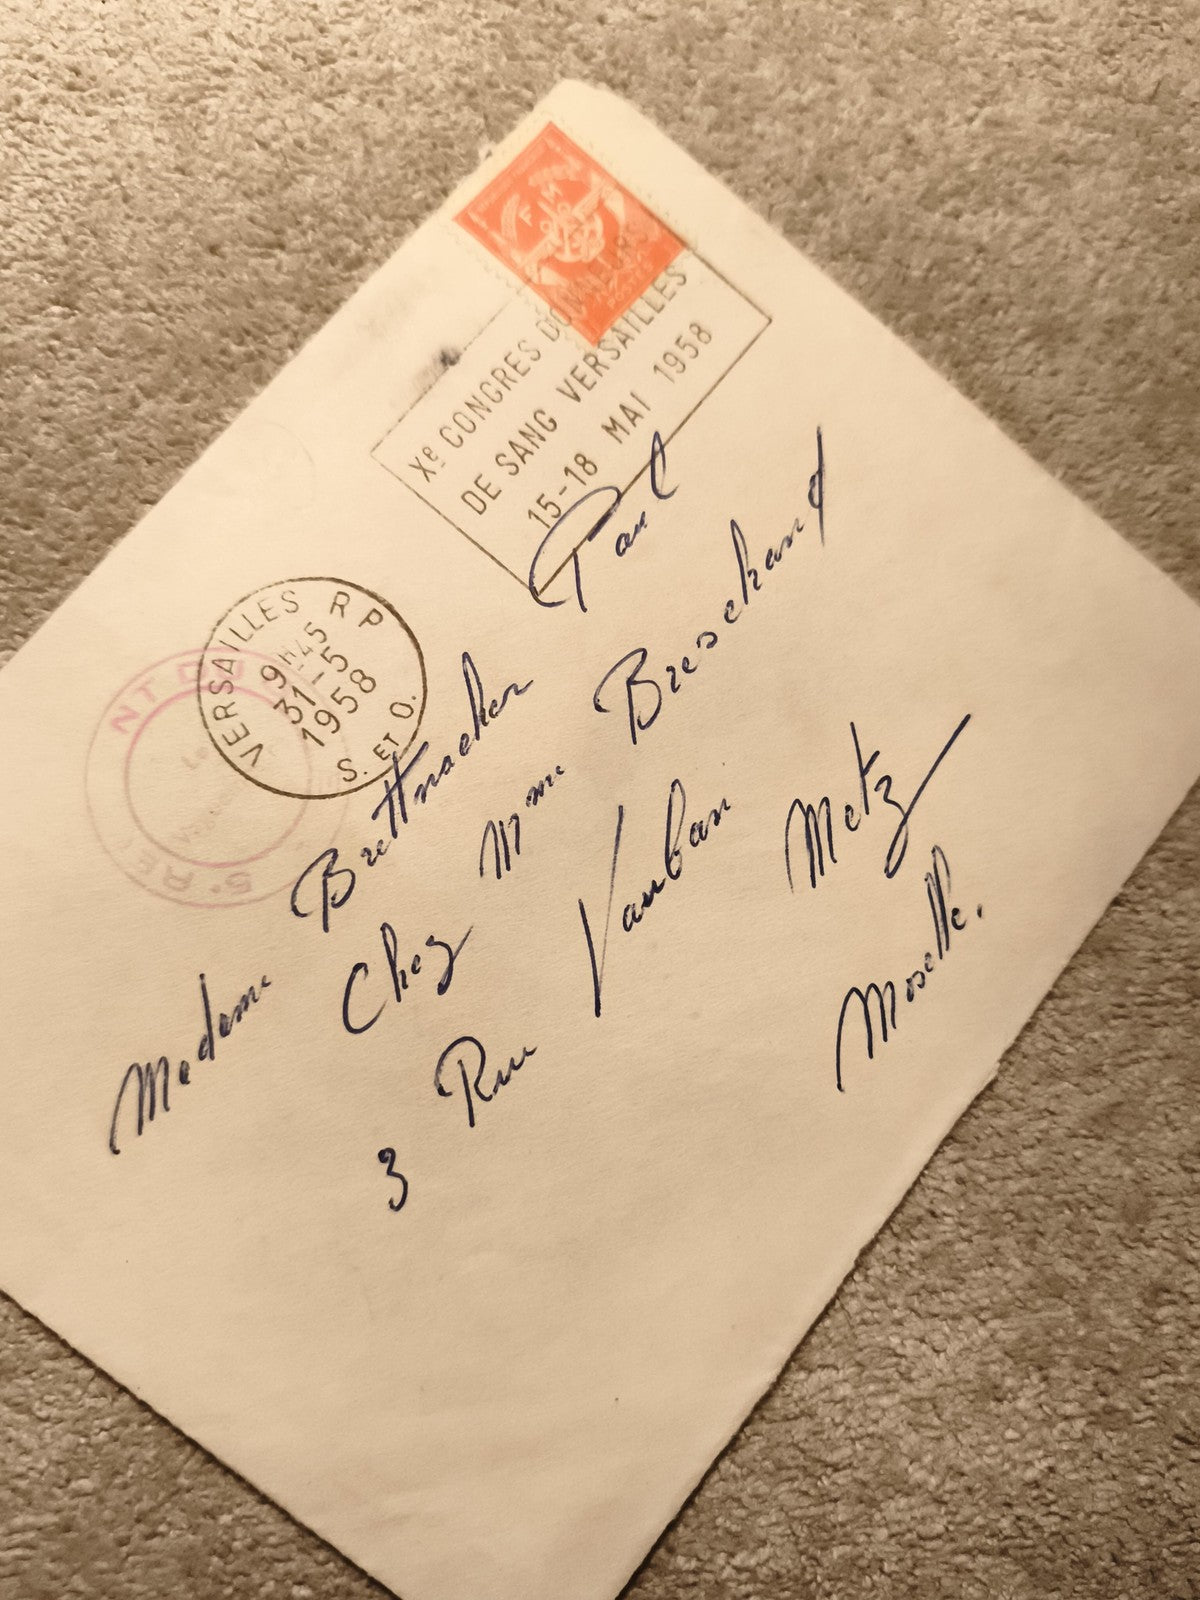 F M
Xe CONGRES DONNEURS
DE SANG VERSAILLES
15-18 MAI 1958
VERSAILLES R P
9H45
31-5
1958
S. ET O.
NT D
5e RE
Madame Brettnacher Paul
Chez Mme Breschand
3 Rue Vauban Metz
Moselle.